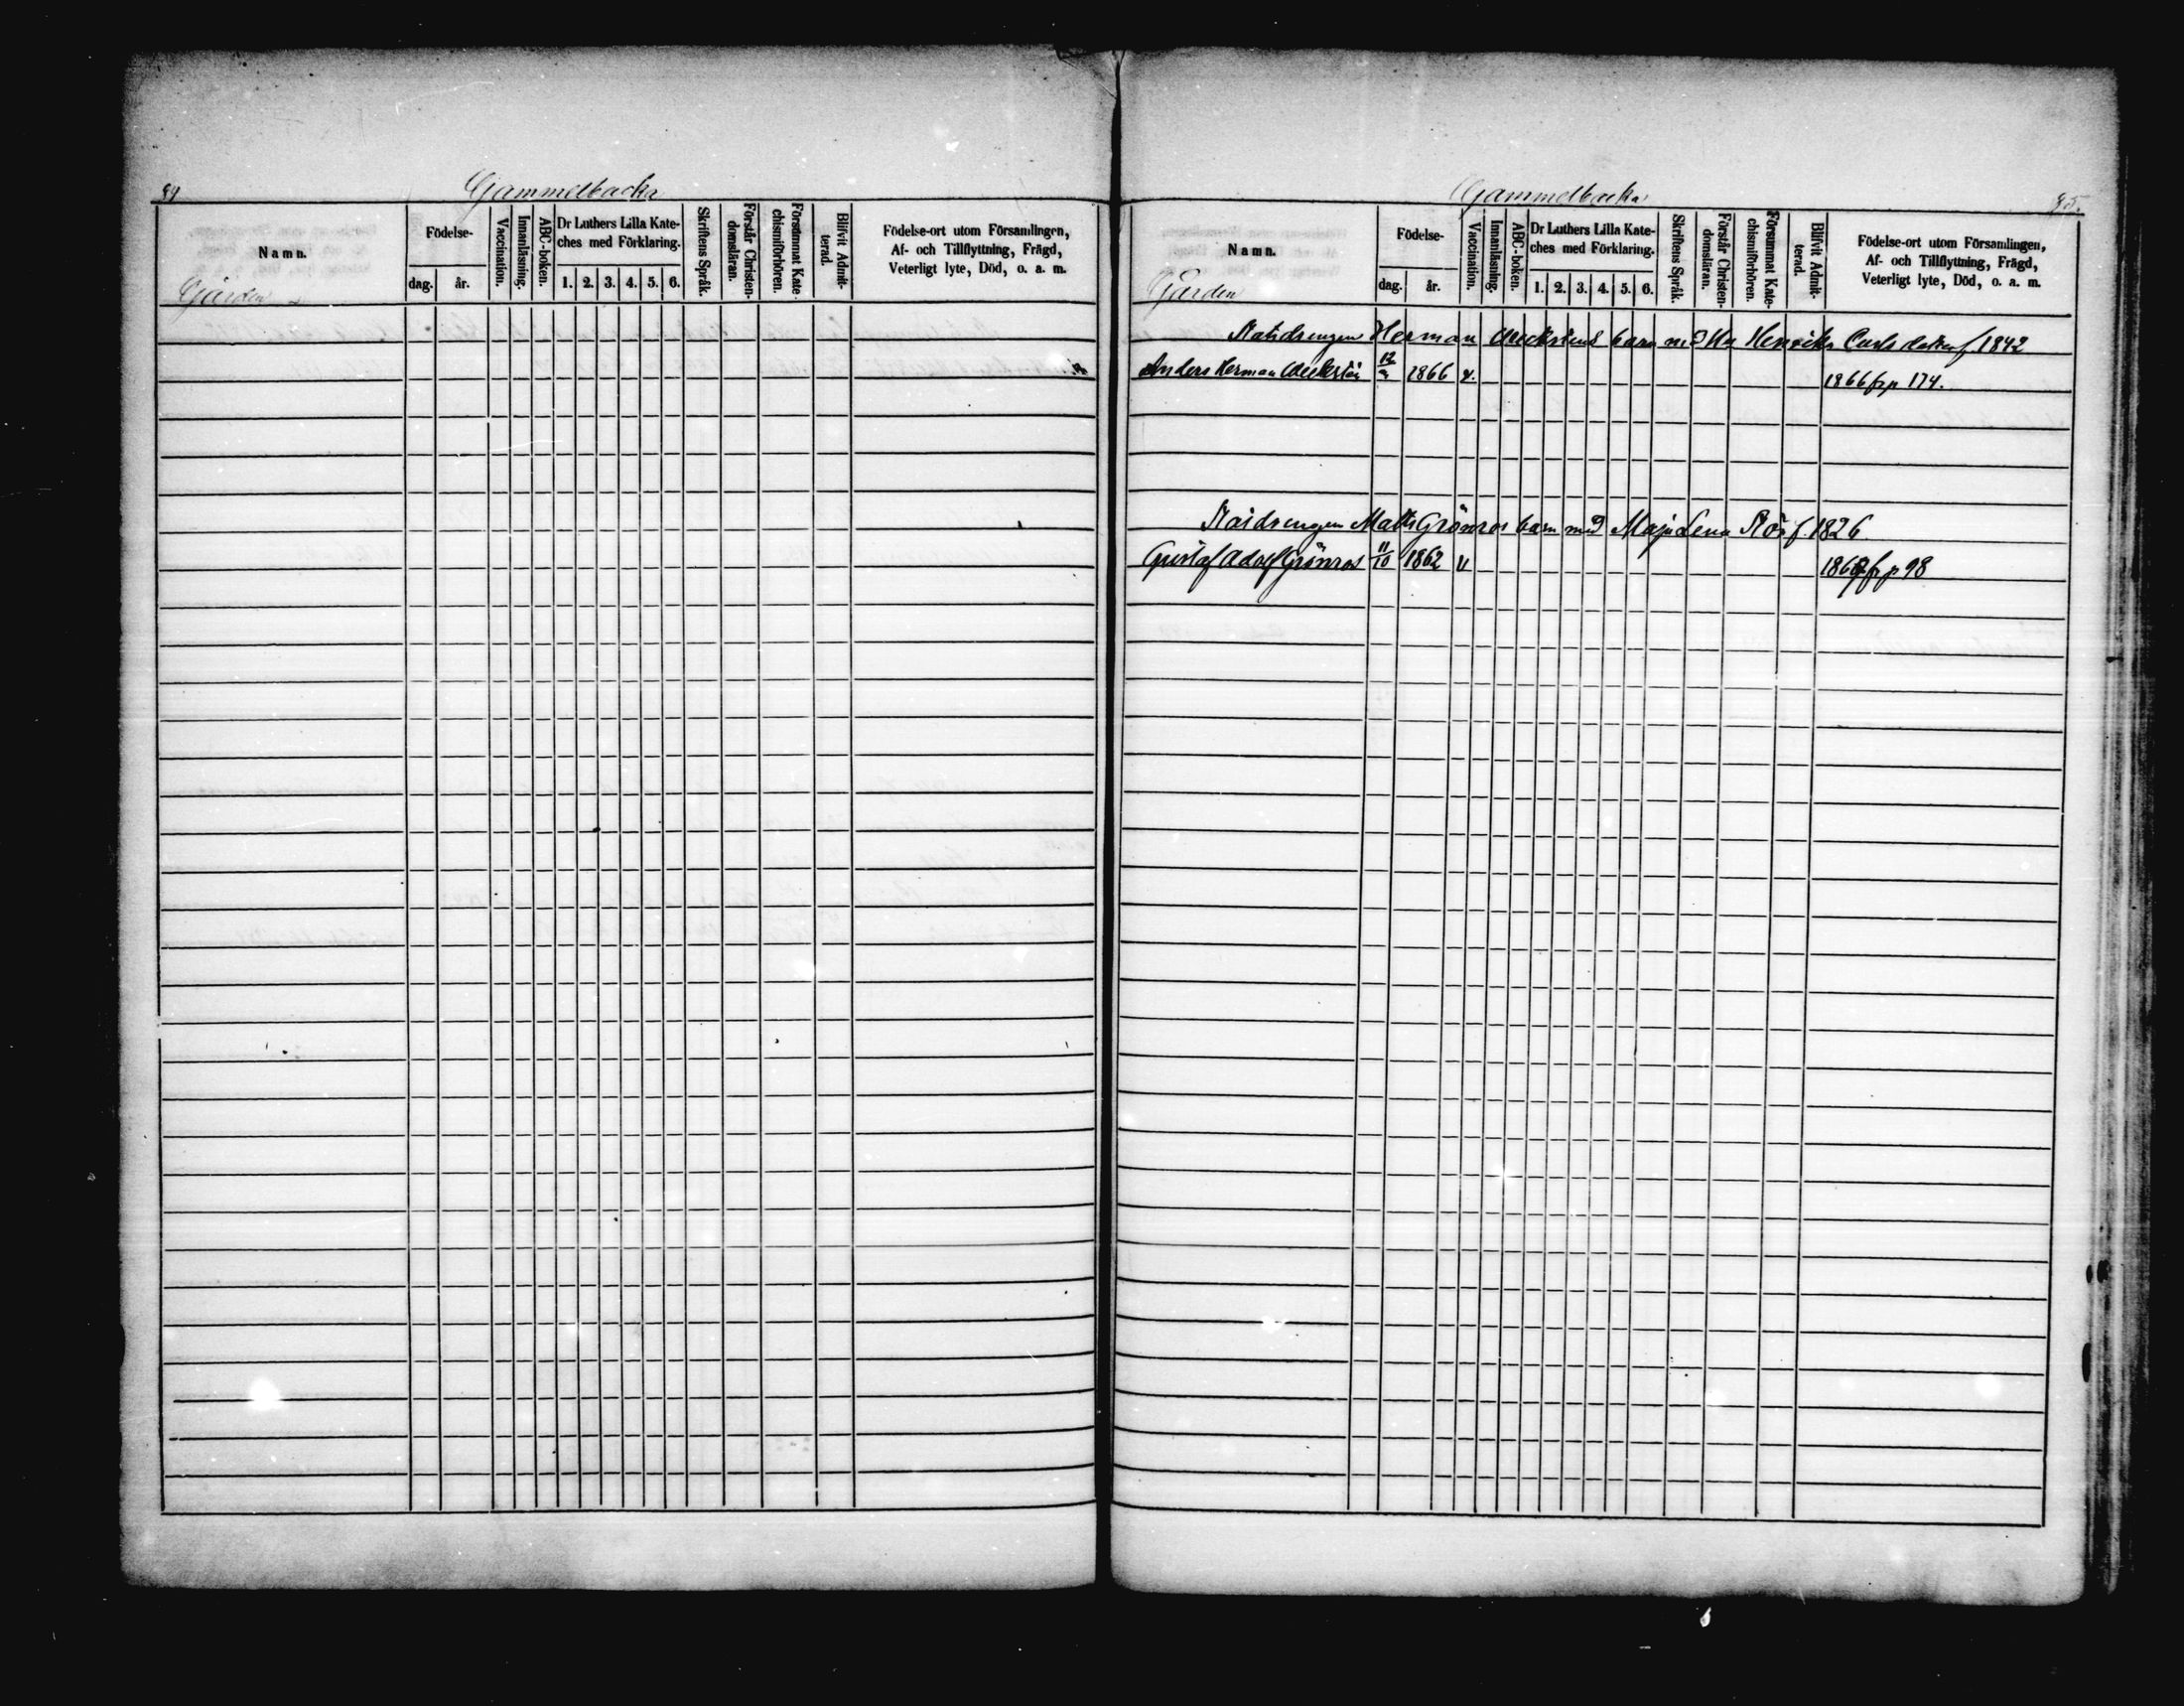 84
Gammelbacka
Namn.
Gården
Födelse-
dag. år.
Vaccination.
Innanläsning.
ABC-boken.
Dr Luthers Lilla Kate-
ches med Förklaring.
1. 2. 3. 4. 5. 6.
Skriftens Språk.
Förstår Christen-
domsläran.
Försummat Kate-
chismiförhören.
Blifvit Admit-
terad.
Födelse-ort utom Församlingen,
Af- och Tillflyttning, Frägd,
Veterligt lyte, Död, o. a. m.
Gammelbacka
85.
Namn.
Gården
Födelse-
dag. år.
Vaccination.
Innanläsning.
ABC-boken.
Dr Luthers Lilla Kate-
ches med Förklaring.
1. 2. 3. 4. 5. 6.
Skriftens Språk.
Förstår Christen-
domsläran.
Försummat Kate-
chismiförhören.
Blifvit Admit-
terad.
Födelse-ort utom Församlingen,
Af- och Tillflyttning, Frägd,
Veterligt lyte, Död, o. a. m.
Statdrengen Herman Weckstens barn med Hu Henrika Carls dotter f. 1842
Anders Herman Weckstén 1866 v. 1866 fr p 174.
Statdrengen Matts Grönros barn med Maja Lena f. 1826
Gustaf Adolf Grönros 11/10 1862 v fr p 98